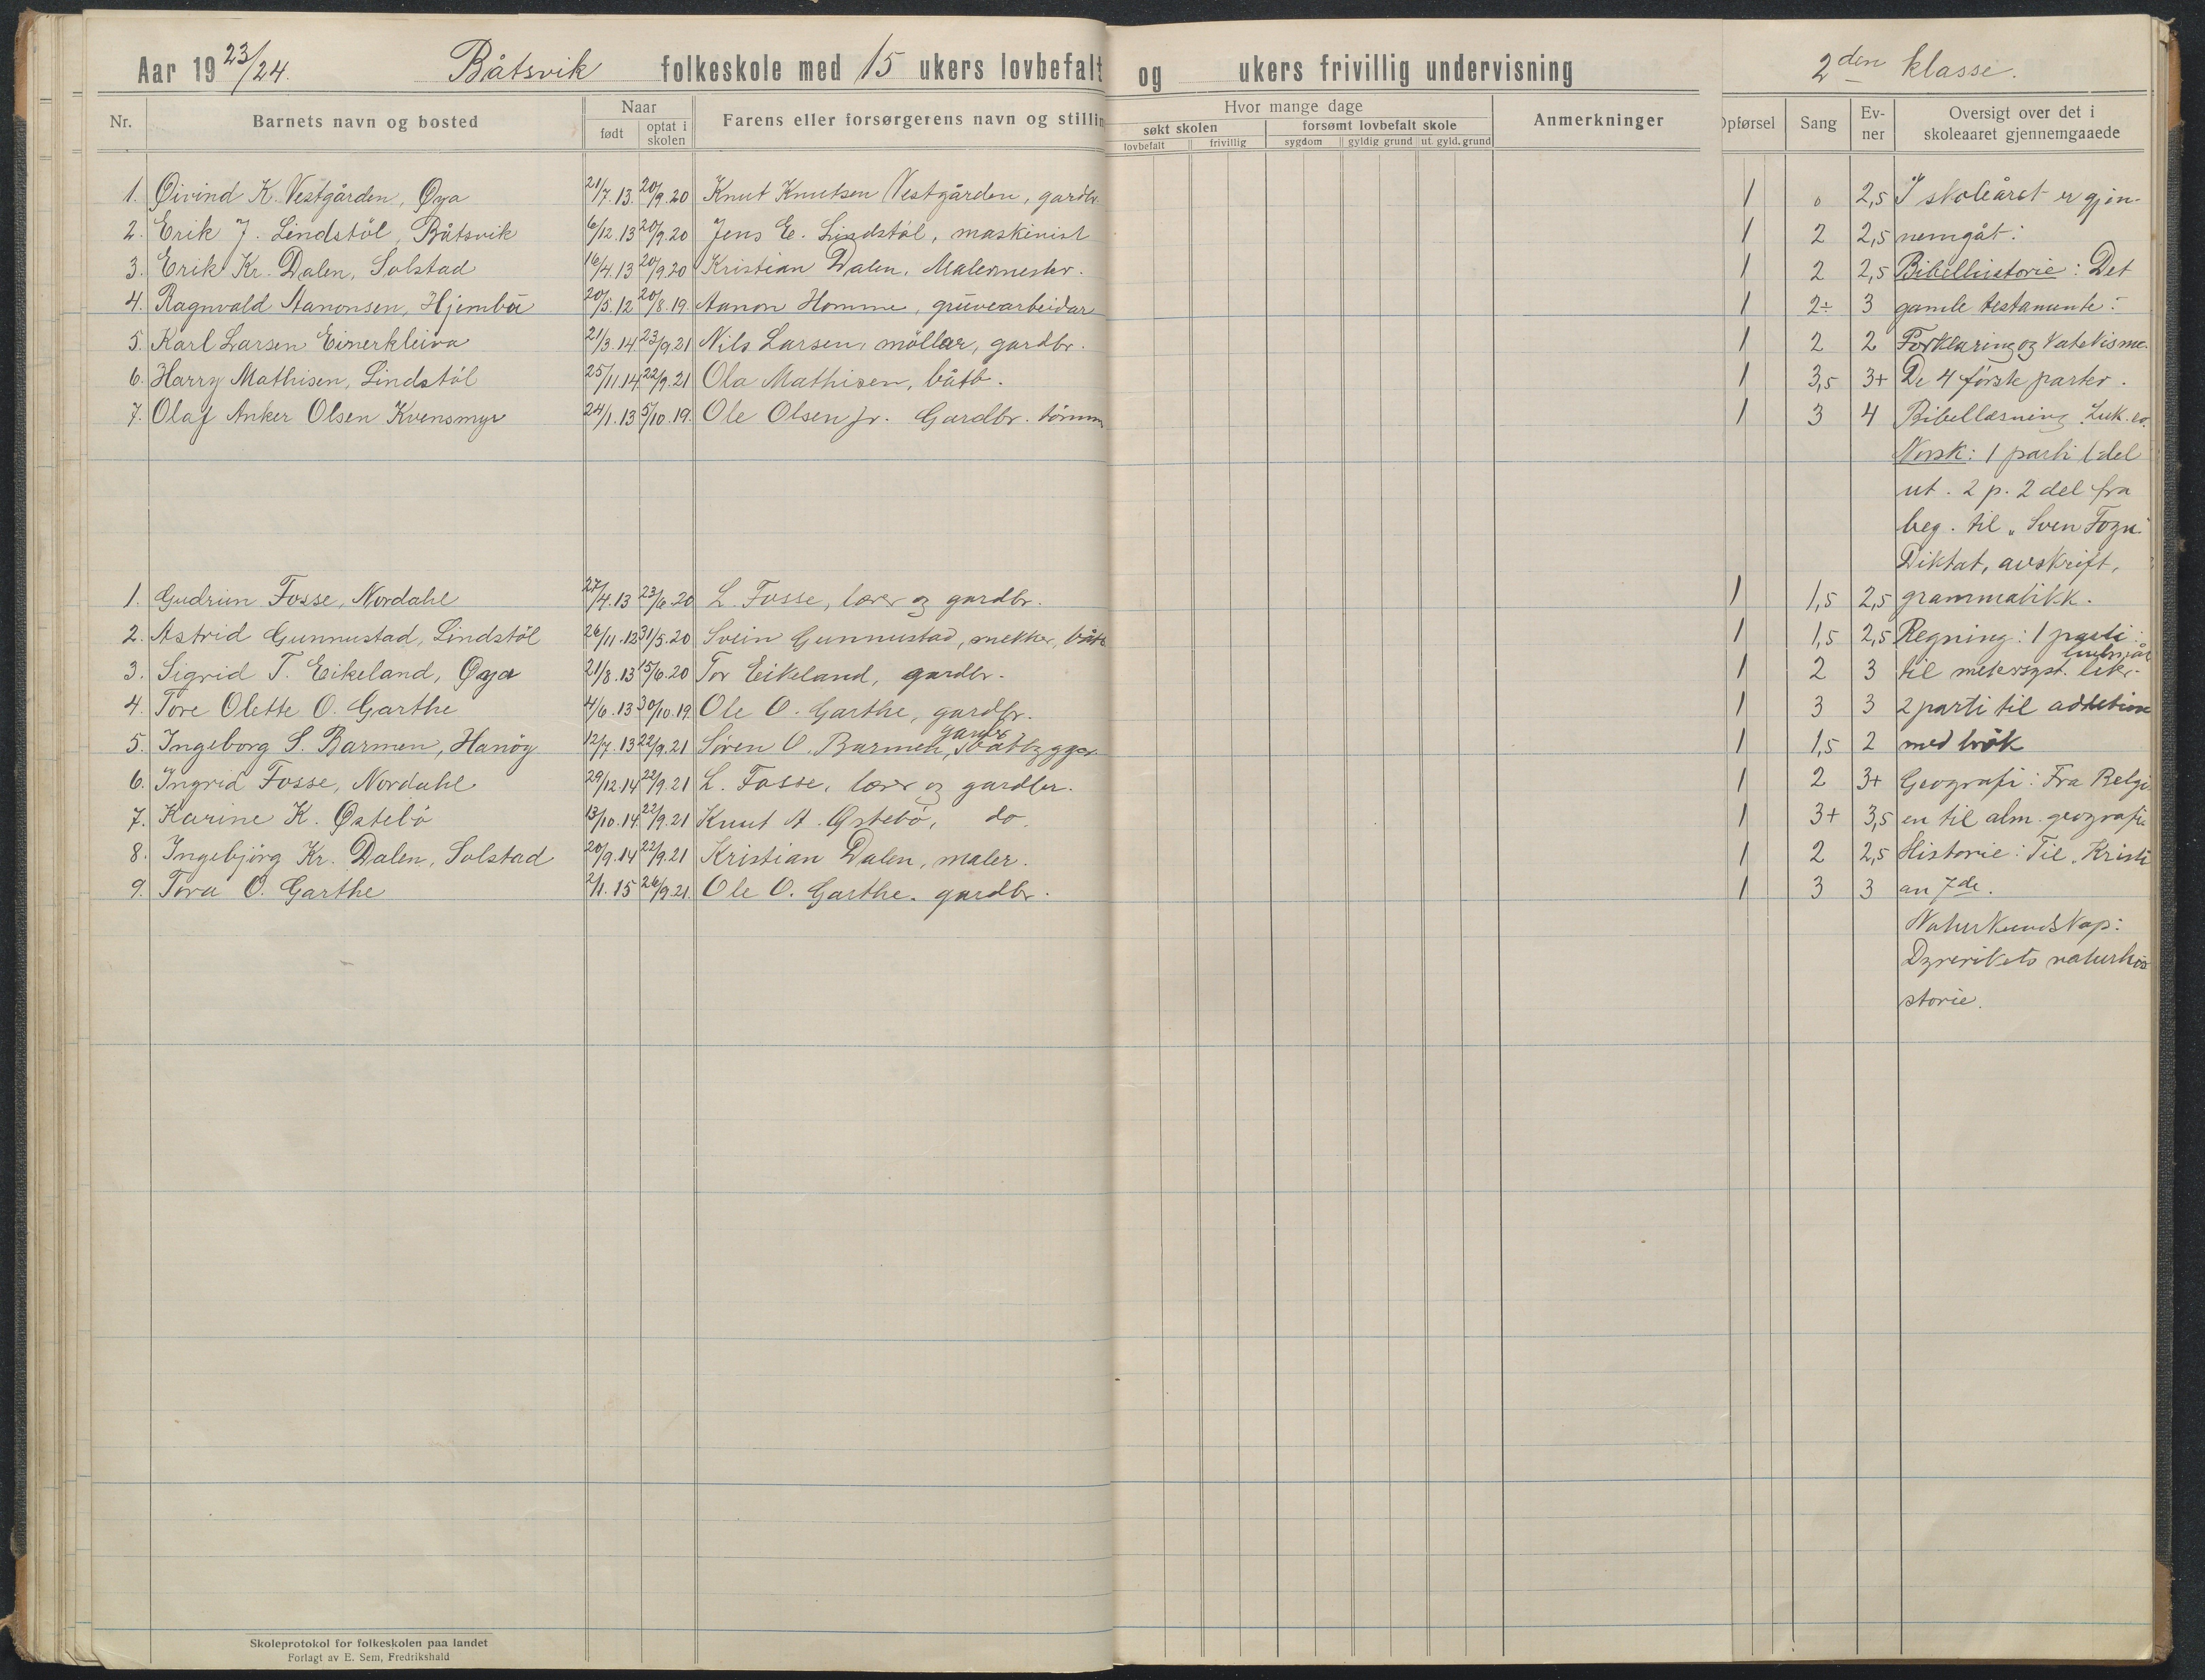 Aar 1923/24. Båtsvik folkeskole med 15 ukers lovbefalt og ukers frivillig undervisning 2den klasse.
Nr. Barnets navn og bosted Naar født optat i skolen Farens eller forsørgerens navn og stillin Hvor mange dage søkt skolen lovbefalt frivillig forsømt lovbefalt skole sygdom gyldig grund ut. gyld. grund Anmerkninger Opførsel Sang Ev-ner Oversigt over det i skoleaaret gjennemgaaede
1. Øivind K. Vestgården, Øya 21/7.13. 20/9.20 Knut Knutsen Vestgården, gardbr. 1 0 2,5 I skoleåret er gjen-
2. Erik J. Lindstöl, Båtsvik 6/12.13 20/9.20 Jens E. Lindstöl, maskinist 1 2 2,5 nemgåt:
3. Erik Kr. Dalen, Solstad 16/4.13 20/9.20 Kristian Dalen, Malermester. 1 2 2,5 Bibelhistorie: Det
4. Ragnvald Aanonsen, Hjembu 20/5.12 20/8.19. Aanon Homme, gruvearbeidar 1 2÷ 3 gamle testamente:
5. Karl Larsen Einerkleiva 21/3.14 23/9.21 Nils Larsen, möllar, gardbr. 1 2 2 Forklaring og katekisme.
6. Harry Mathisen, Lindstöl 25/11.14 22/9.21 Ola Mathisen, båtb. 1 3,5 3+ De 4 første parter.
7. Olaf Anker Olsen Kvensmyr 24/1.13 5/10.19. Ole Olsen jr. Gardbr. tömm 1 3 4 Bibellæsning Luk. ev.
Norsk: 1 parti 1 del
ut. 2 p. 2 del fra
beg. til „Sven Foyn"
Diktat, avskrift,
1. Gudrun Fosse, Nordahl 27/4.13 23/6.20 L. Fosse, lærer og gardbr. 1 1,5 2,5 grammatikk.
2. Astrid Gunnustad, Lindstöl 26/11.12 31/5.20 Svein Gunnustad, snekker, båtb 1 1,5 2,5 Regning: 1 parti:
3. Sigrid T. Eikeland, Øya 21/8.13 15/6.20 Tor Eikeland, gardbr. 1 2 3 til metersyst.
4. Tore Olette O. Garthe 4/6.13 30/10.19. Ole O. Garthe, gardbr. 1 3 3 2 parti til addition
5. Ingeborg S. Barmen, Hanöy 12/7.13 22/9.21 Søren O. Barmen, gardbr båtbygger 1 1,5 2 med brök
6. Ingrid Fosse, Nordahl 29/12.14 22/9.21 L. Fosse, lærer og gardbr. 1 2 3+ Geografi: Fra Belgi
7. Karine K. Østebö 13/10.14. 22/9.21 Knut A. Østebö, do. 1 3+ 3,5 en til alm. geografi
8. Ingebjörg Kr. Dalen, Solstad 20/9.14 22/9.21 Kristian Dalen, maler. 1 2 2,5 Historie: Til „Kristi
9. Tora O. Garthe 2/1.15 26/9.21. Ole O. Garthe. gardbr. 1 3 3 an 7de.
Naturkundskap:
Dyrerikets naturhi
storie.
Skoleprotokol for folkeskolen paa landet
Forlagt av E. Sem, Fredrikshald